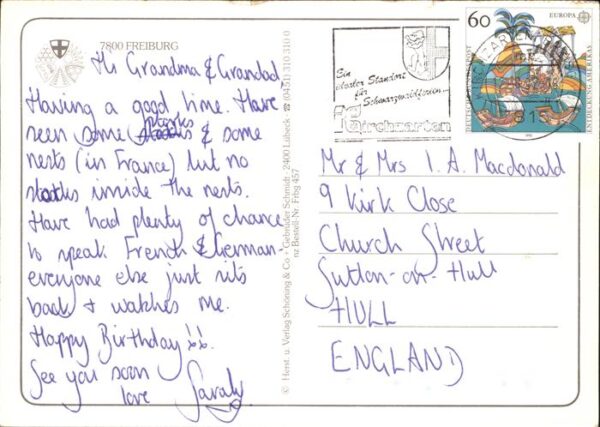 7800 FREIBURG
Hi Grandma & Grandad
Having a good time. Have
seen some storks & some
nests (in France) but no
storks inside the nests.
Have had plenty of chance
to speak French & German-
everyone else just sits
back & watches me.
Happy Birthday!!
See you soon
love Sarah
© Herst. u. Verlag Schöning & Co + Gebrüder Schmidt · 2400 Lübeck · ☎ (0451) 310 310 0
nz Bestell-Nr. Frbg 457
Ein
idealer Standort
für
Schwarzwaldferien
Kirchzarten
60
EUROPA
DEUTSCHE BUNDESPOST
ENTDECKUNG AMERIKAS
Mr & Mrs I. A. Macdonald
9 Kirk Close
Church Street
Sutton-on-Hull
HULL
ENGLAND